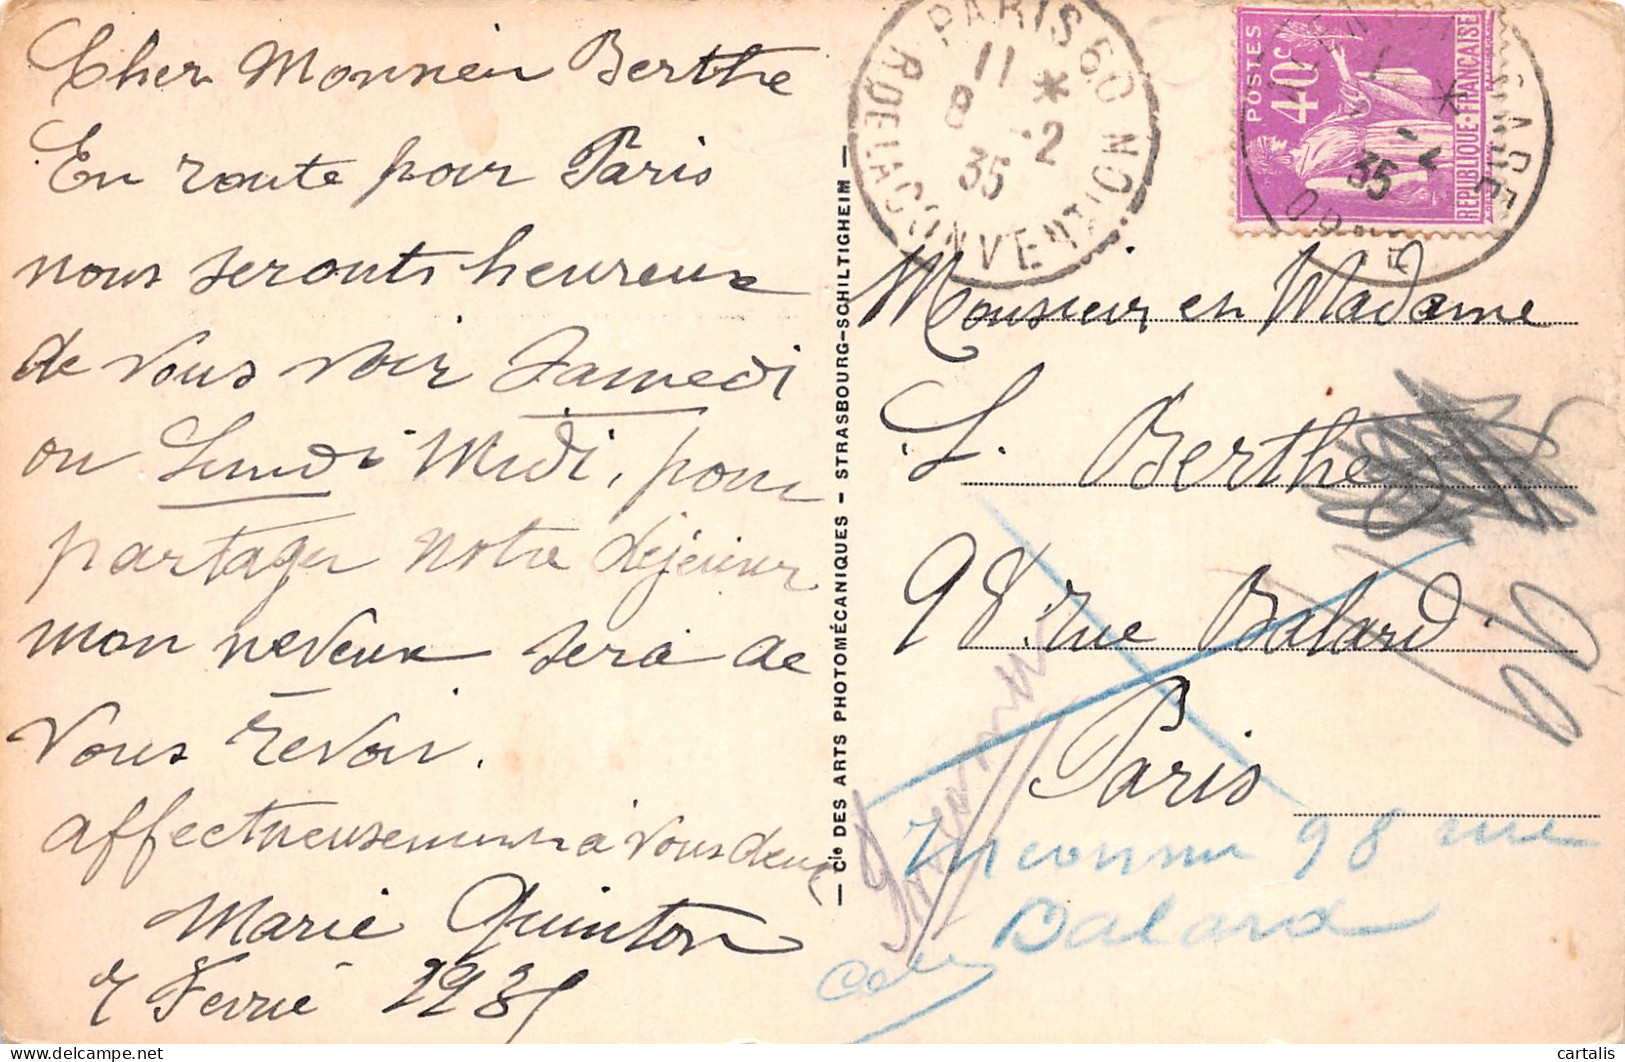 Cher Monsieur Berthe
En route pour Paris
nous seronts heureux
de vous voir Samedi
ou Lundi Midi, pour
partager notre déjeuner
mon neveux sera de
vous revoir.
affectueusement à vous deux
Marie Quinton
7 Fevrié
— Cie DES ARTS PHOTOMÉCANIQUES - STRASBOURG-SCHILTIGHEIM —
PARIS 60
11 *
8 -2
35
R. DE LA CONVENTION
POSTES
40c
REPUBLIQUE-FRANÇAISE
GARE
35
Monsieur et Madame
L. Berthe
98 rue Balard
Paris
Inconnu
Inconnu 98 rue
Balard
cartalis
delcampe.net